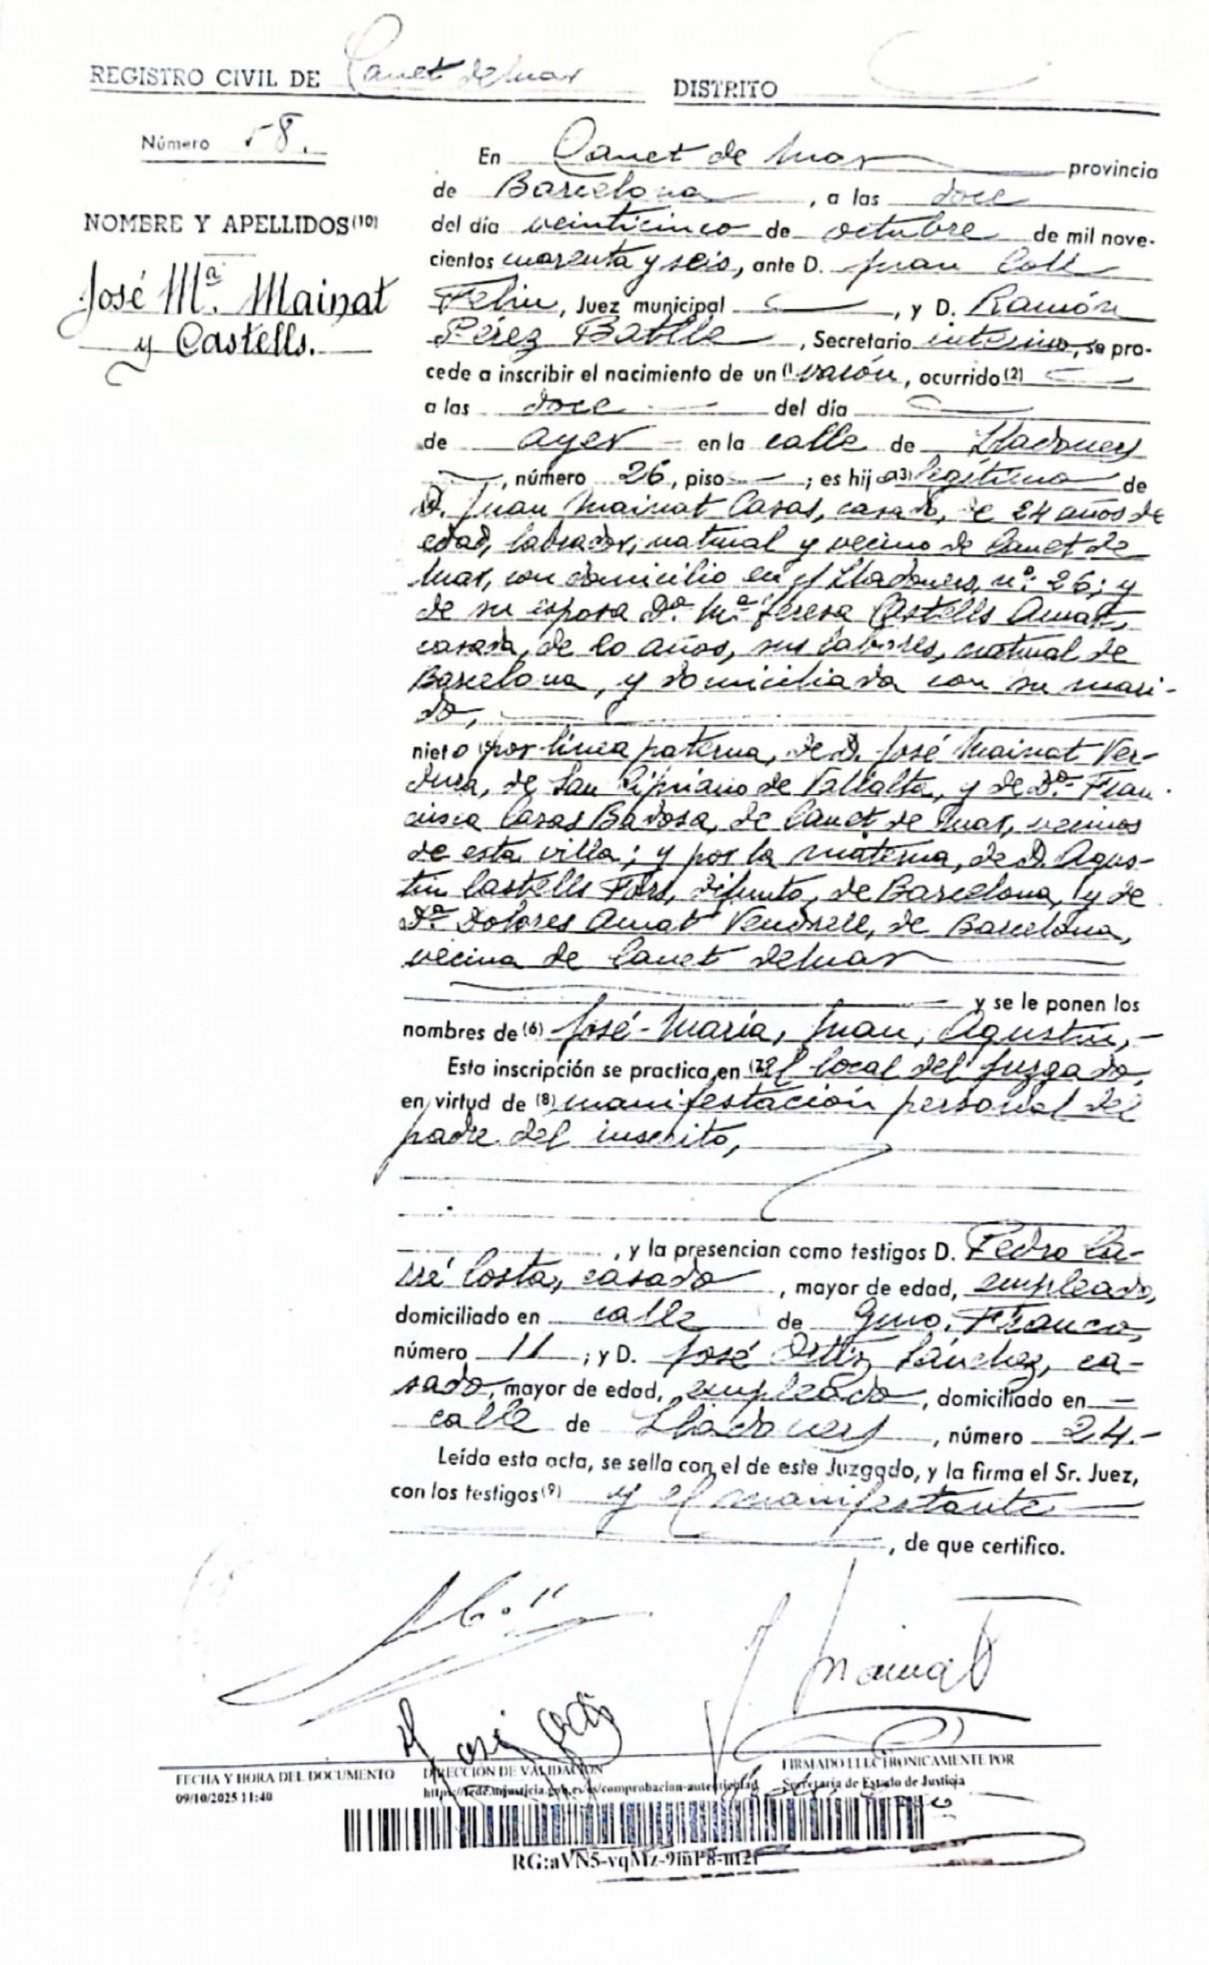 REGISTRO CIVIL DE Canet de Mar DISTRITO
Número 58.
NOMBRE Y APELLIDOS (10)
José Mª. Mainat
y Castells.
En Canet de Mar provincia
de Barcelona, a las doce
del día veinticinco de octubre de mil nove-
cientos cuarenta y seis, ante D. Juan Coll
Feliu, Juez municipal, y D. Ramón
Pérez Batlle, Secretario interino, se pro-
cede a inscribir el nacimiento de un (1) varón, ocurrido (2)
a las doce del día
de ayer en la calle de Lladoners
, número 26, piso ; es hijo (3) legítimo de
D. Juan Mainat Casas, casado, de 24 años de
edad, labrador, natural y vecino de Canet de
Mar, con domicilio en c/ Lladoners, nº. 26; y
de su esposa Dª. Mª Teresa Castells Amat,
casada, de 20 años, sus labores, natural de
Barcelona, y domiciliada con su mari-
do,
nieto por línea paterna, de D. José Mainat Ver-
dura, de San Cipriano de Vallalta, y de Dª. Fran-
cisca Casas Badosa, de Canet de Mar, vecinos
de esta villa; y por la materna, de D. Agus-
tín Castells Fors, difunto, de Barcelona, y de
Dª Dolores Amat Vendrell, de Barcelona,
vecina de Canet de Mar
y se le ponen los
nombres de (6) José-María, Juan, Agustín,
Esta inscripción se practica en (7) el local del Juzgado,
en virtud de (8) manifestación personal del
padre del inscrito,
, y la presencian como testigos D. Pedro Ca-
rré Costa, casado, mayor de edad, empleado,
domiciliado en calle de Gmo. Franco,
número 11; y D. José Ortiz Sánchez, ca-
sado, mayor de edad, empleado, domiciliado en
calle de Lladoners, número 24.-
Leída esta acta, se sella con el de este Juzgado, y la firma el Sr. Juez,
con los testigos (9) y el manifestante
, de que certifico.
J. Coll
J. Mainat
José Ortiz
FECHA Y HORA DEL DOCUMENTO
09/10/2025 11:40
DIRECCIÓN DE VALIDACIÓN
FIRMADO ELECTRONICAMENTE POR
Secretaría de Estado de Justicia